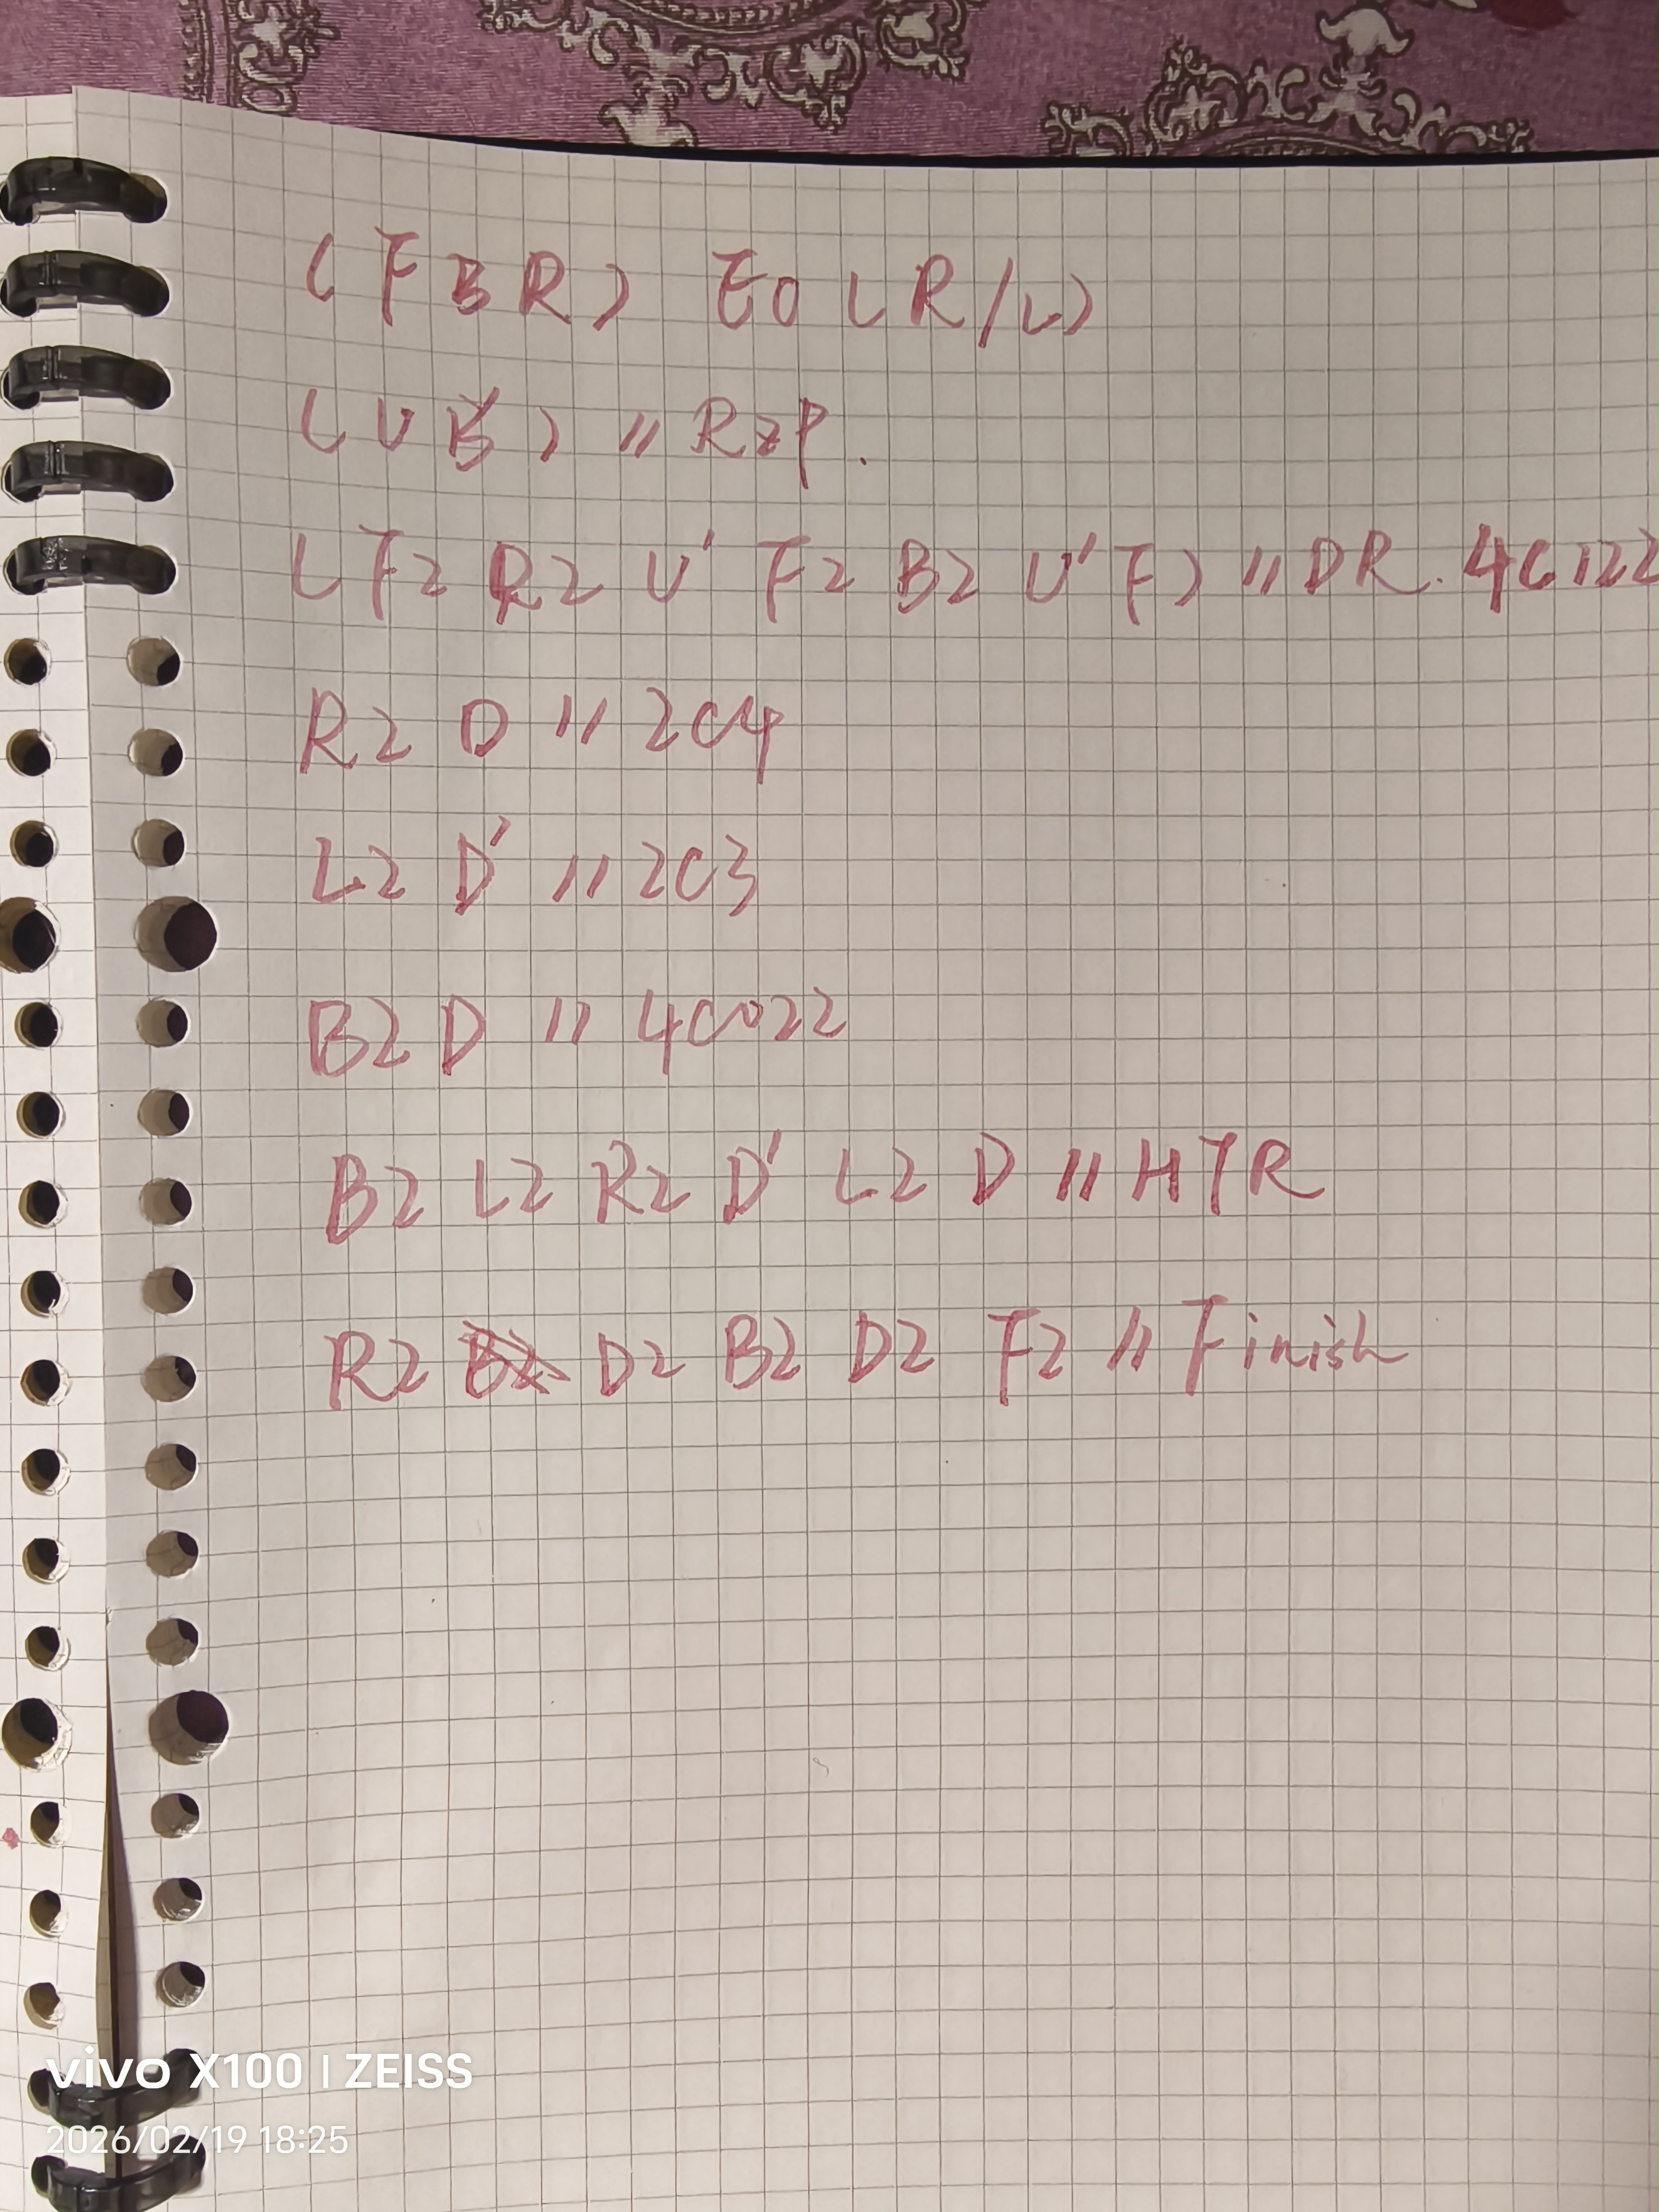 (F B R) EO (R/L)
(U B') // RZP.
(F2 R2 U' F2 B2 U' F) // DR. 4C122
R2 D // 2C4
L2 D' // 2C3
B2 D // 4C022
B2 L2 R2 D' L2 D // HTR
R2 D2 B2 D2 F2 // Finish
vivo X100 | ZEISS
2026/02/19 18:25